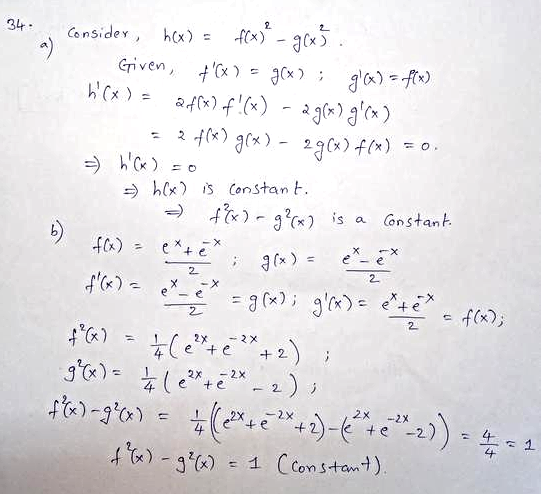 34.
a) Consider, h(x) = f(x)² - g(x)².
Given, f'(x) = g(x) ; g'(x) = f(x)
h'(x) = 2f(x) f'(x) - 2g(x) g'(x)
= 2 f(x) g(x) - 2g(x) f(x) = 0.
⇒ h'(x) = 0
⇒ h(x) is constant.
⇒ f²(x) - g²(x) is a constant.
b) f(x) = (e^x + e^-x)/2 ; g(x) = (e^x - e^-x)/2
f'(x) = (e^x - e^-x)/2 = g(x) ; g'(x) = (e^x + e^-x)/2 = f(x);
f²(x) = 1/4 (e^2x + e^-2x + 2) ;
g²(x) = 1/4 (e^2x + e^-2x - 2) ;
f²(x) - g²(x) = 1/4 ((e^2x + e^-2x + 2) - (e^2x + e^-2x - 2)) = 4/4 = 1
f²(x) - g²(x) = 1 (constant).